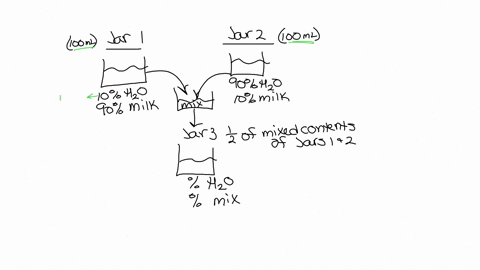 (100mL) Jar 1
Jar 2 (100mL)
10% H2O
90% milk
90% H2O
10% milk
mix
Jar 3 1/2 of mixed contents
of Jars 1 & 2
% H2O
% mix